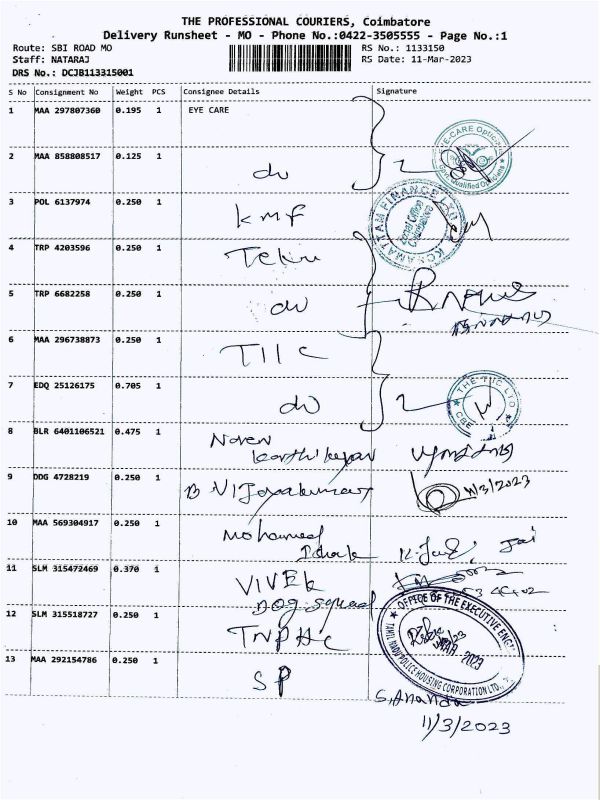 THE PROFESSIONAL COURIERS, Coimbatore
Delivery Runsheet - MO - Phone No.:0422-3505555 - Page No.:1
Route: SBI ROAD MO
RS No.: 1133150
Staff: NATARAJ
RS Date: 11-Mar-2023
DRS No.: DCJB113315001
S No Consignment No Weight PCS Consignee Details Signature
1 MAA 297807360 0.195 1 EYE CARE
2 MAA 858808517 0.125 1 do
EYE-CARE Opticians
3 POL 6137974 0.250 1 KMF
4 TRP 4203596 0.250 1
5 TRP 6682258 0.250 1 do
6 MAA 296738873 0.250 1 TIIC
7 EDQ 25126175 0.705 1 do
THE TIIC LTD
CBE
8 BLR 6401106521 0.475 1 Naren
Karthikeyan
9 DDG 4728219 0.250 1 B Vijayakumar
11/3/2023
10 MAA 569304917 0.250 1 Mohamed
11 SLM 315472469 0.370 1 VIVEK
DOG Squad
12 SLM 315518727 0.250 1 TNPHC
OFFICE OF THE EXECUTIVE ENG
TAMIL NADU POLICE HOUSING CORPORATION LTD.
MAR 2023
13 MAA 292154786 0.250 1 SP
S. Ananda
11/3/2023